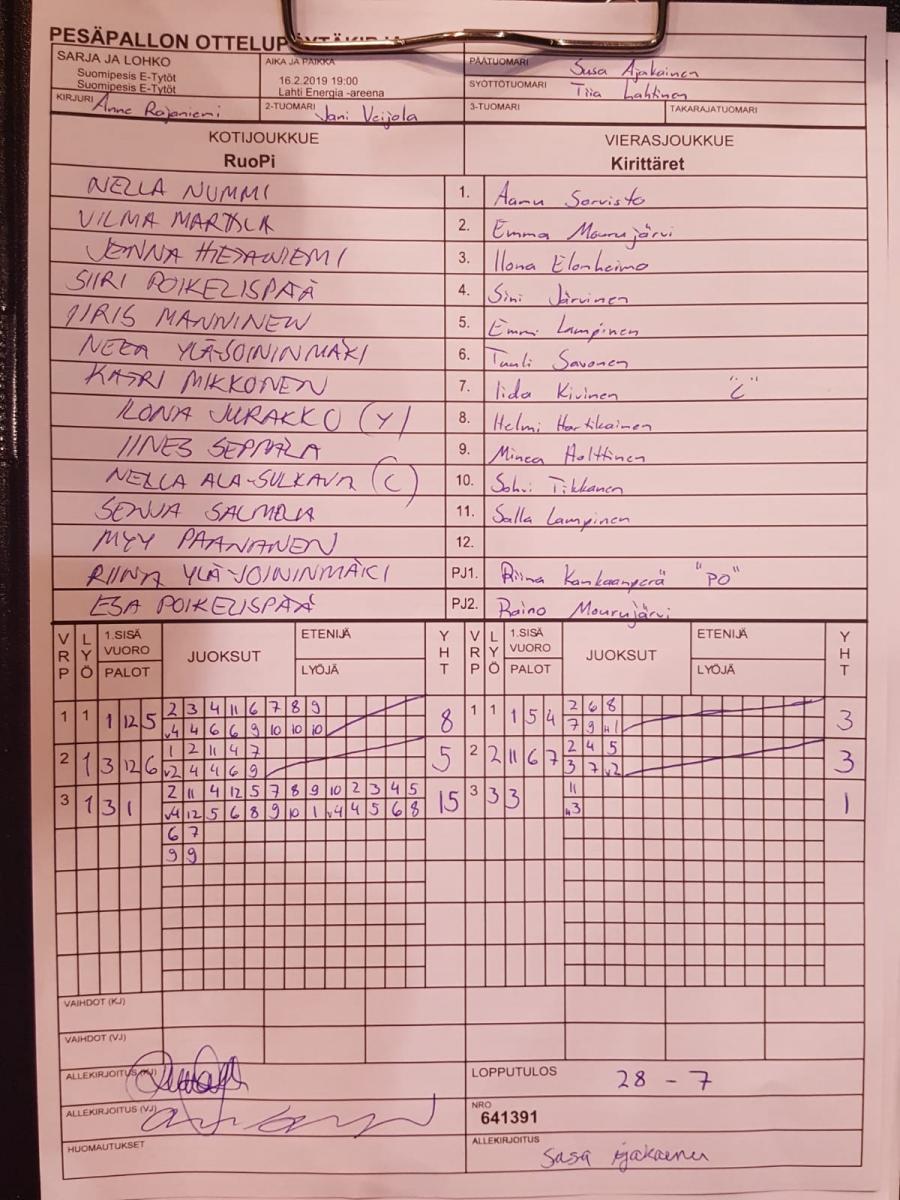 PESÄPALLON OTTELUPÖYTÄKIRJA
SARJA JA LOHKO
Suomipesis E-Tytöt
Suomipesis E-Tytöt
AIKA JA PAIKKA
16.2.2019 19:00
Lahti Energia -areena
PÄÄTUOMARI Susa Ajakainen
SYÖTTÖTUOMARI Tiia Lahtinen
KIRJURI Anne Rajaniemi
2-TUOMARI Jani Veijola
3-TUOMARI
TAKARAJATUOMARI
KOTIJOUKKUE
RuoPi
VIERASJOUKKUE
Kirittäret
NELLA NUMMI 1. Aamu Sorvisto
VILMA MARTTILA 2. Emma Mourujärvi
JENNA HIETANIEMI 3. Ilona Elonheimo
SIIRI POIKELISPÄÄ 4. Sini Järvinen
IIRIS MANNINEN 5. Emmi Lampinen
NEEA YLÄ-SOININMÄKI 6. Tuuli Savonen
KATRI MIKKONEN 7. Iida Kivinen "C"
ILONA JURAKKO (Y) 8. Helmi Hartikainen
IINES SEPPÄLÄ 9. Minea Holttinen
NELLA ALA-SULKAVA (C) 10. Sohvi Tikkanen
SENJA SALMELA 11. Salla Lampinen
MYY PAANANEN 12.
RIINA YLÄ-SOININMÄKI PJ1. Riina Kankaanperä "PO"
ESA POIKELISPÄÄ PJ2. Raino Mourujärvi
VRP LYÖ 1.SISÄ VUORO PALOT JUOKSUT ETENIJÄ LYÖJÄ YHT VRP LYÖ 1.SISÄ VUORO PALOT JUOKSUT ETENIJÄ LYÖJÄ YHT
1 1 1 12 5 2 3 4 11 6 7 8 9 8 1 1 1 5 4 2 6 8 3
v4 4 6 6 9 10 10 10 7 9 "1
2 1 3 12 6 1 2 11 4 7 5 2 2 11 6 7 2 4 5 3
v2 4 4 6 9 3 7 v2
3 1 3 1 2 11 4 12 5 7 8 9 10 2 3 4 5 15 3 3 3 11 1
v4 12 5 6 8 9 10 1 v4 4 5 6 8 "3
6 7
9 9
VAIHDOT (KJ)
VAIHDOT (VJ)
ALLEKIRJOITUS (KJ)
LOPPUTULOS 28 - 7
ALLEKIRJOITUS (VJ)
NRO
641391
HUOMAUTUKSET
ALLEKIRJOITUS
Susa Ajakainen